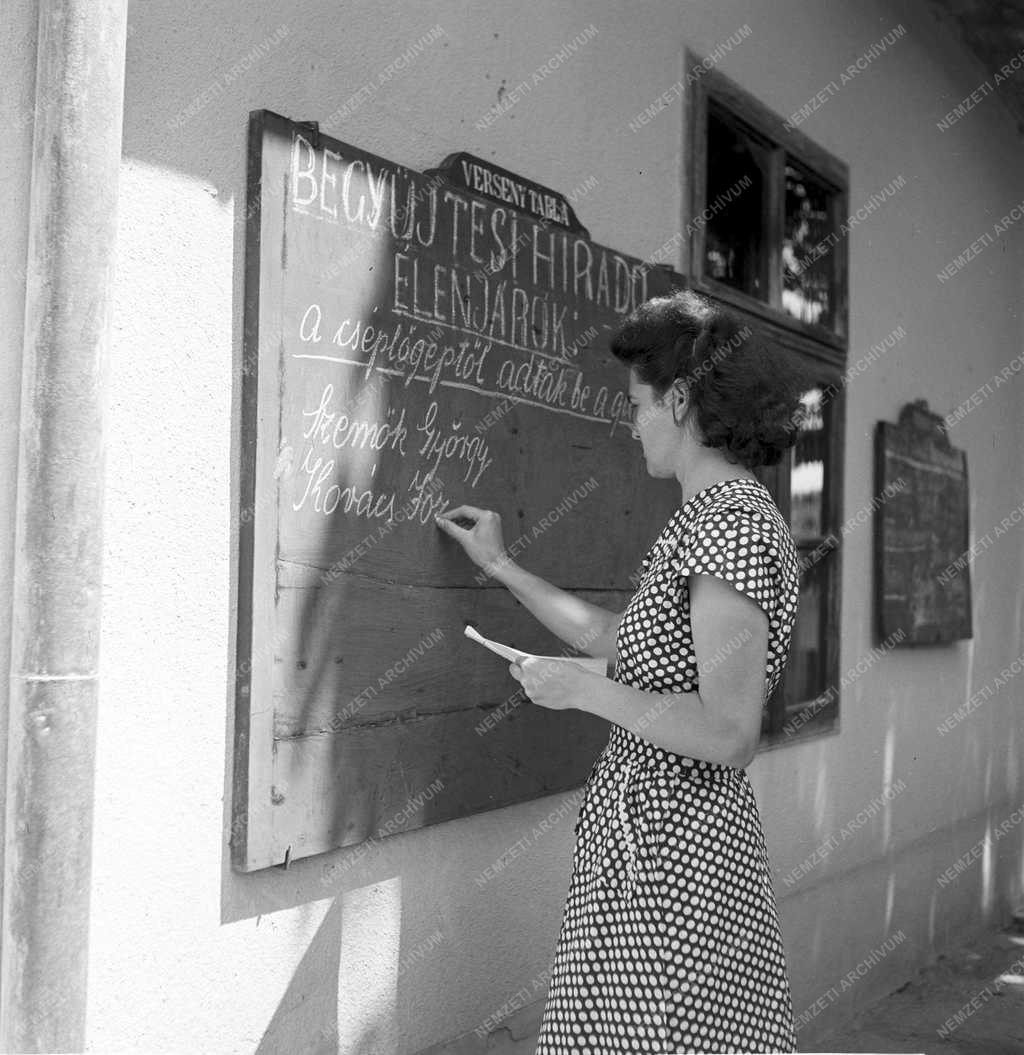 VERSENY TÁBLA
BEGYŰJTÉSI HIRADÓ
ÉLENJÁRÓK:
A cséplőgéptől adták be a
Szemők György
Kovács Józ
NEMZETI ARCHÍVUM